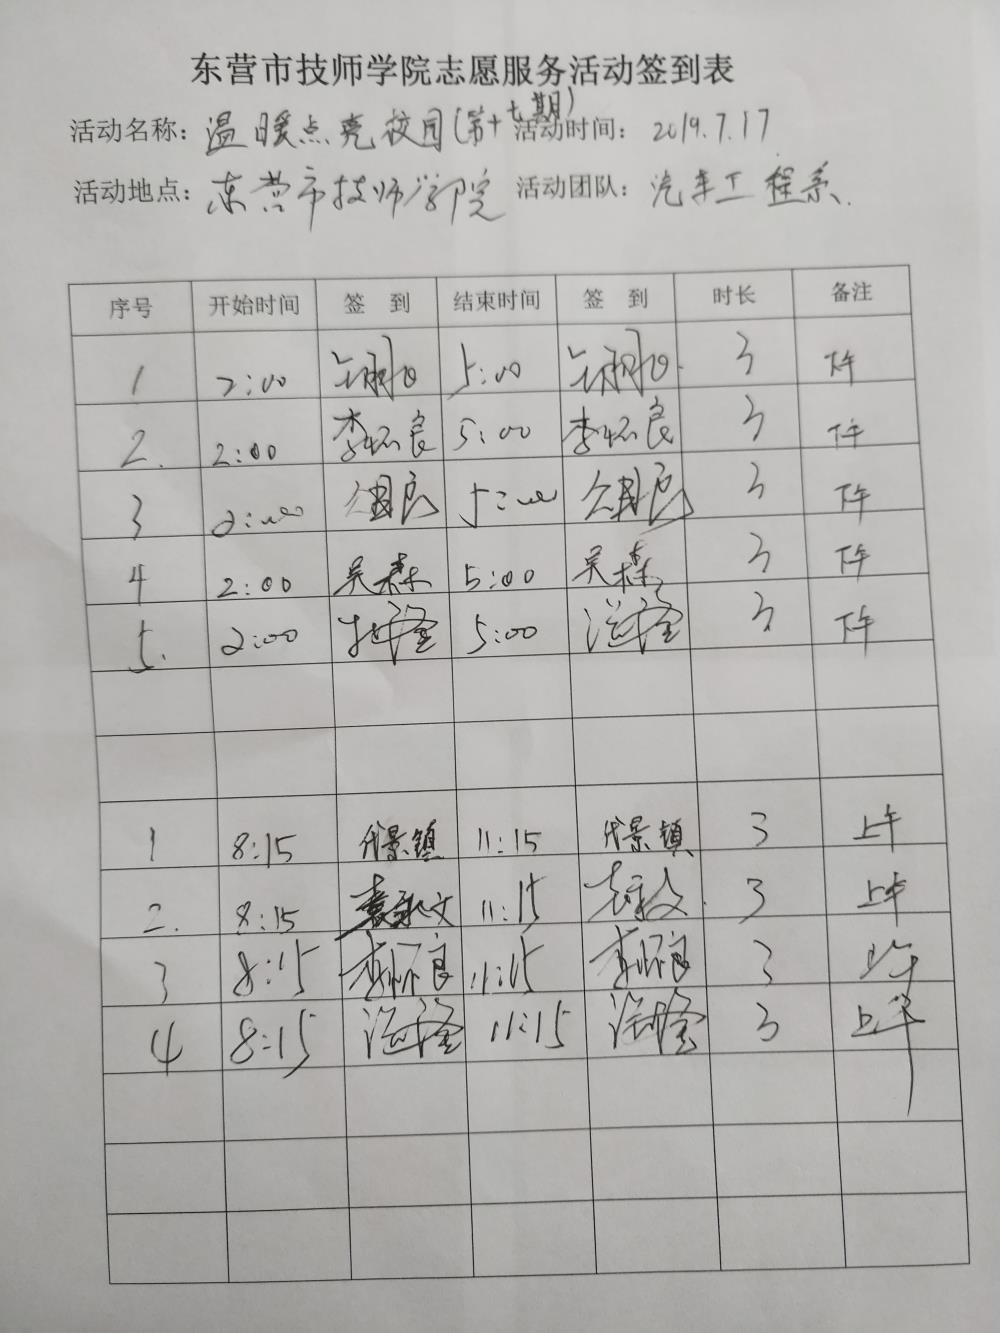 东营市技师学院志愿服务活动签到表
活动名称：温暖点亮校园(第十七期) 活动时间：2019.7.17
活动地点：东营市技师学院 活动团队：汽车工程系.
序号 开始时间 签 到 结束时间 签 到 时长 备注
1 2:00 5:00 3 下午
2. 2:00 李怀良 5:00 李怀良 3 下午
3 2:00 5:00 3 下午
4 2:00 吴森 5:00 吴森 3 下午
5. 2:00 5:00 3 下午
1 8:15 代景镇 11:15 代景镇 3 上午
2. 8:15 11:15 3 上午
3 8:15 李怀良 11:15 李怀良 3 上午
4 8:15 11:15 3 上午